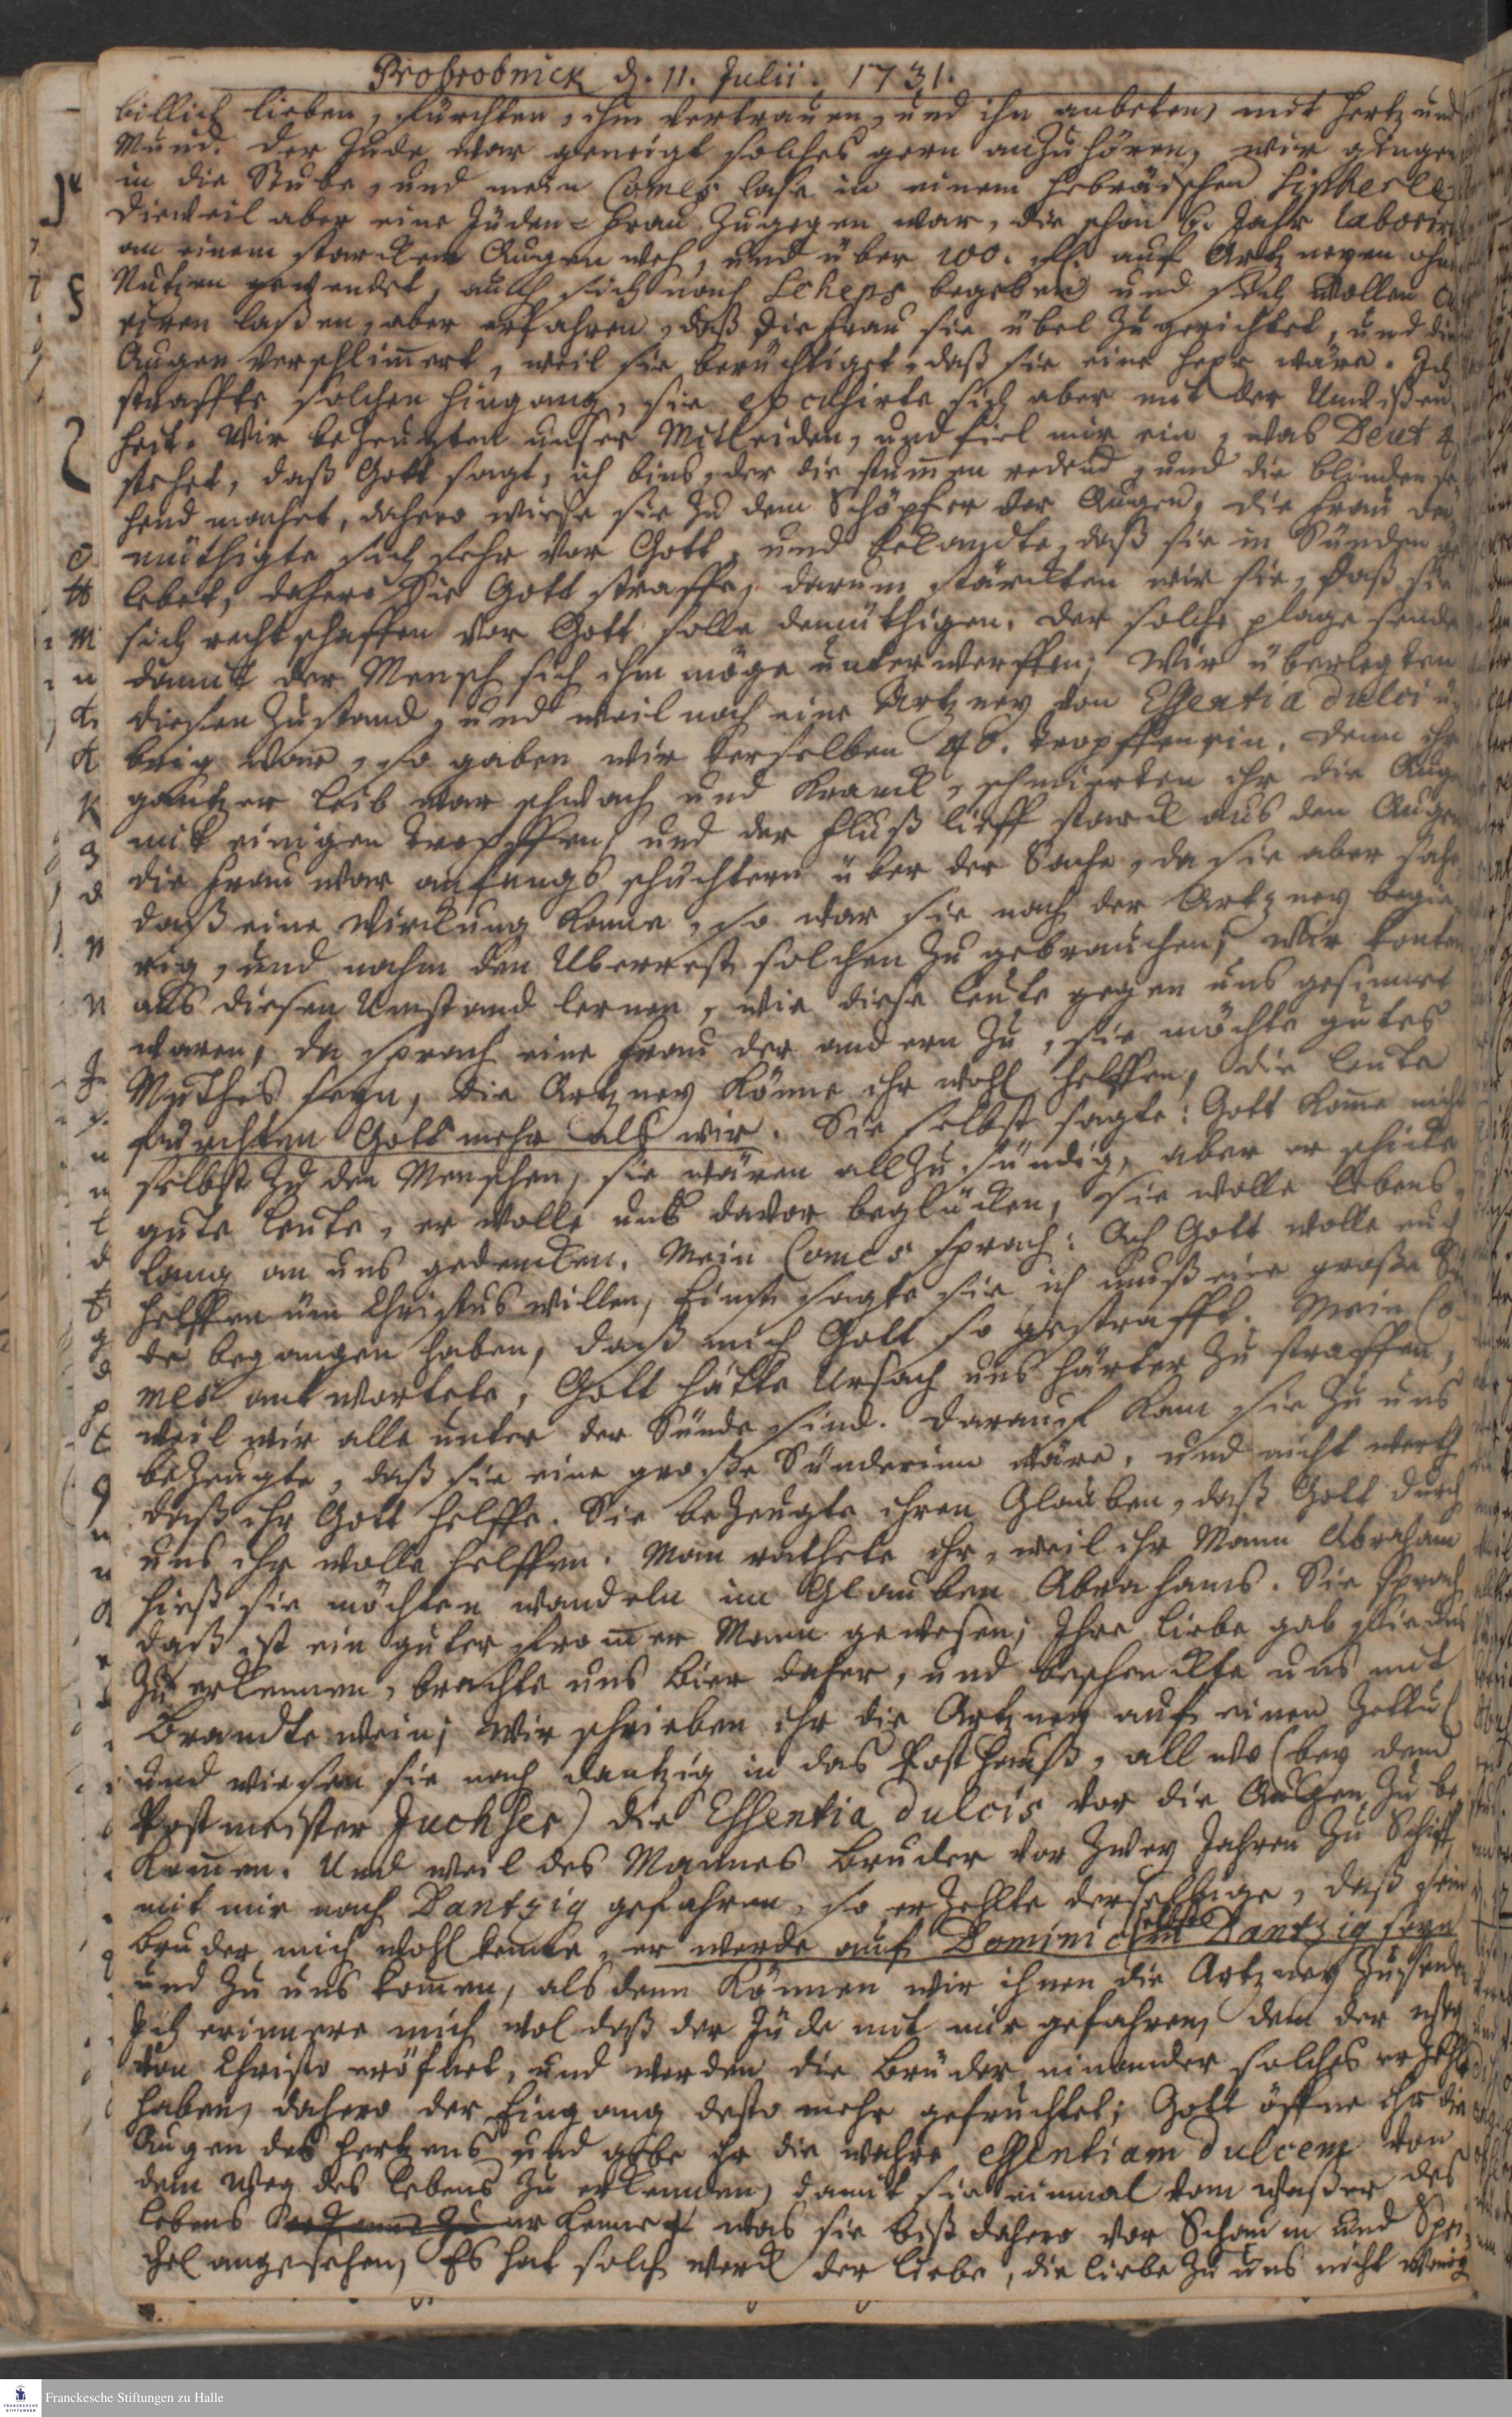 Probrobnick d. 11. Julii. 1731.
billich lieben, fürchten, ihm vertrauen, und ihn anbeten, mit Hertz und
Mund. Der Jude war geneigt solches gern anzuhören, wir gingen
in die Stube, und mein Comes lase in einem hebräischen
dieweil aber eine Juden-Frau zugegen war, die schon 6. Jahr laborirt
an einem starcken Augen weh, und über 100. fl. auf Artzneyen ohne
Nutzen gewendet, auch sich nach Scheps begeben und sich wollen cu
riren laßen, aber erfahren, daß die Frau sie übel zugerichtet, und die
Augen verschlimert, weil sie berüchtiget, daß sie eine Hexe wäre. Ich
straffte solchen Hingang, sie excusirte sich aber mit der Unwißen
heit. Wir bezeugten unser Mitleiden, und fiel mir ein, was Deut 4
stehet, daß Gott sagt, ich bins, der die stummen redend, und die blinden se
hend machet, dahero wiese sie zu dem Schöpfer der Augen, die Frau de
müthigte sich sehr vor Gott, und bekandte, daß sie in Sünden ge
lebet, dahero Sie Gott straffe, darum stärckten wir sie, daß sie
sich rechtschaffen vor Gott solle demüthigen, der solche plage sende
damit der Mensch sich ihm möge unterwerffen; Wir überlegten
diesen Zustand, und weil noch eine Artzney von Essentia dulci ü
brig war, so gaben wir derselben 40. Tropffen ein, denn ihr
gantzer Leib war schwach und kranck, schmierten ihr die Augen
mit einigen Tropffen, und der Fluß lieff starck aus den Augen
die Frau war anfangs schüchtern über der Sache, da sie aber sahe,
daß eine Wirckung käme, so war sie nach der Artzney begie
rig, und nahm den Uberrest solchen zu gebrauchen; Wir konten
aus diesen Umstand lernen, wie diese Leute gegen uns gesinnet
waren, da sprach eine Frau der andern zu, sie möchte gutes
Muthes seyn, die Artzney könne ihr wohl helffen, die Leute
fürchten Gott mehr als wir. Sie selbst sagte: Gott kome nicht
selbst zu den Menschen, sie wären allzu sündig, aber er schicke
gute Leute, er wolle uns davor beglücken, sie wolle lebens
lang an uns gedencken. Mein Comes sprach: Ach Gott wolle euch
helffen um Christus willen, Einst sagte sie ich muß eine große Sü
de begangen haben, daß mich Gott so gestrafft. Mein Co
mes antwortete, Gott hätte Ursach uns härter zu straffen,
weil wir alle unter der Sünde sind. Darauf kam sie zu uns
bezeugte, daß sie eine große Sünderinn wäre, und nicht werth
daß ihr Gott helffe. Sie bezeugte ihren Glauben, daß Gott durch
uns ihr wolle helffen. Man rathete ihr, weil ihr Mann Abraham
hieß sie möchten wandeln im Glauben Abrahams. Sie sprach
daß ist ein guter fromer Mann gewesen; Ihre Liebe gab sie uns
zu erkennen, brachte uns Bier daher, und beschenckte uns mit
Brandtewein; Wir schrieben ihr die Artzney auf einen Zettul
und wiesen sie nach Dantzig in das Posthauß, allwo (bey dem
Postmeister Juchser) die Essentia dulcis vor die Augen zu be
komen. Und weil des Mannes Bruder vor zwey Jahren zu Schiff
mit mir nach Dantzig gefahren, so erzehlte derselbige, daß sein
Bruder mich wohl kente, er werde auf Dominic in Dantzig seyn
und zu uns komen, als denn können wir ihnen die Artzney zusenden
Ich erinnere mich wol daß der Jude mit mir gefahren, dem der Weg
von Christo eröfnet, und werden die Brüder einander solches erzehlt
haben, dahero der Eingang desto mehr gefruchtet; Gott öffne ihr die
Augen des Hertzens und gebe ihr die wahre essentiam dulcem von
dem Weg des Lebens zu erkennen, damit sie einmal vom Waßer des
Lebens erkenne was sie biß dahero vor Schaum und Spei
chel angesehen, Es hat solch Werck der Liebe, die Liebe zu uns nicht wenig
Franckesche Stiftungen zu Halle